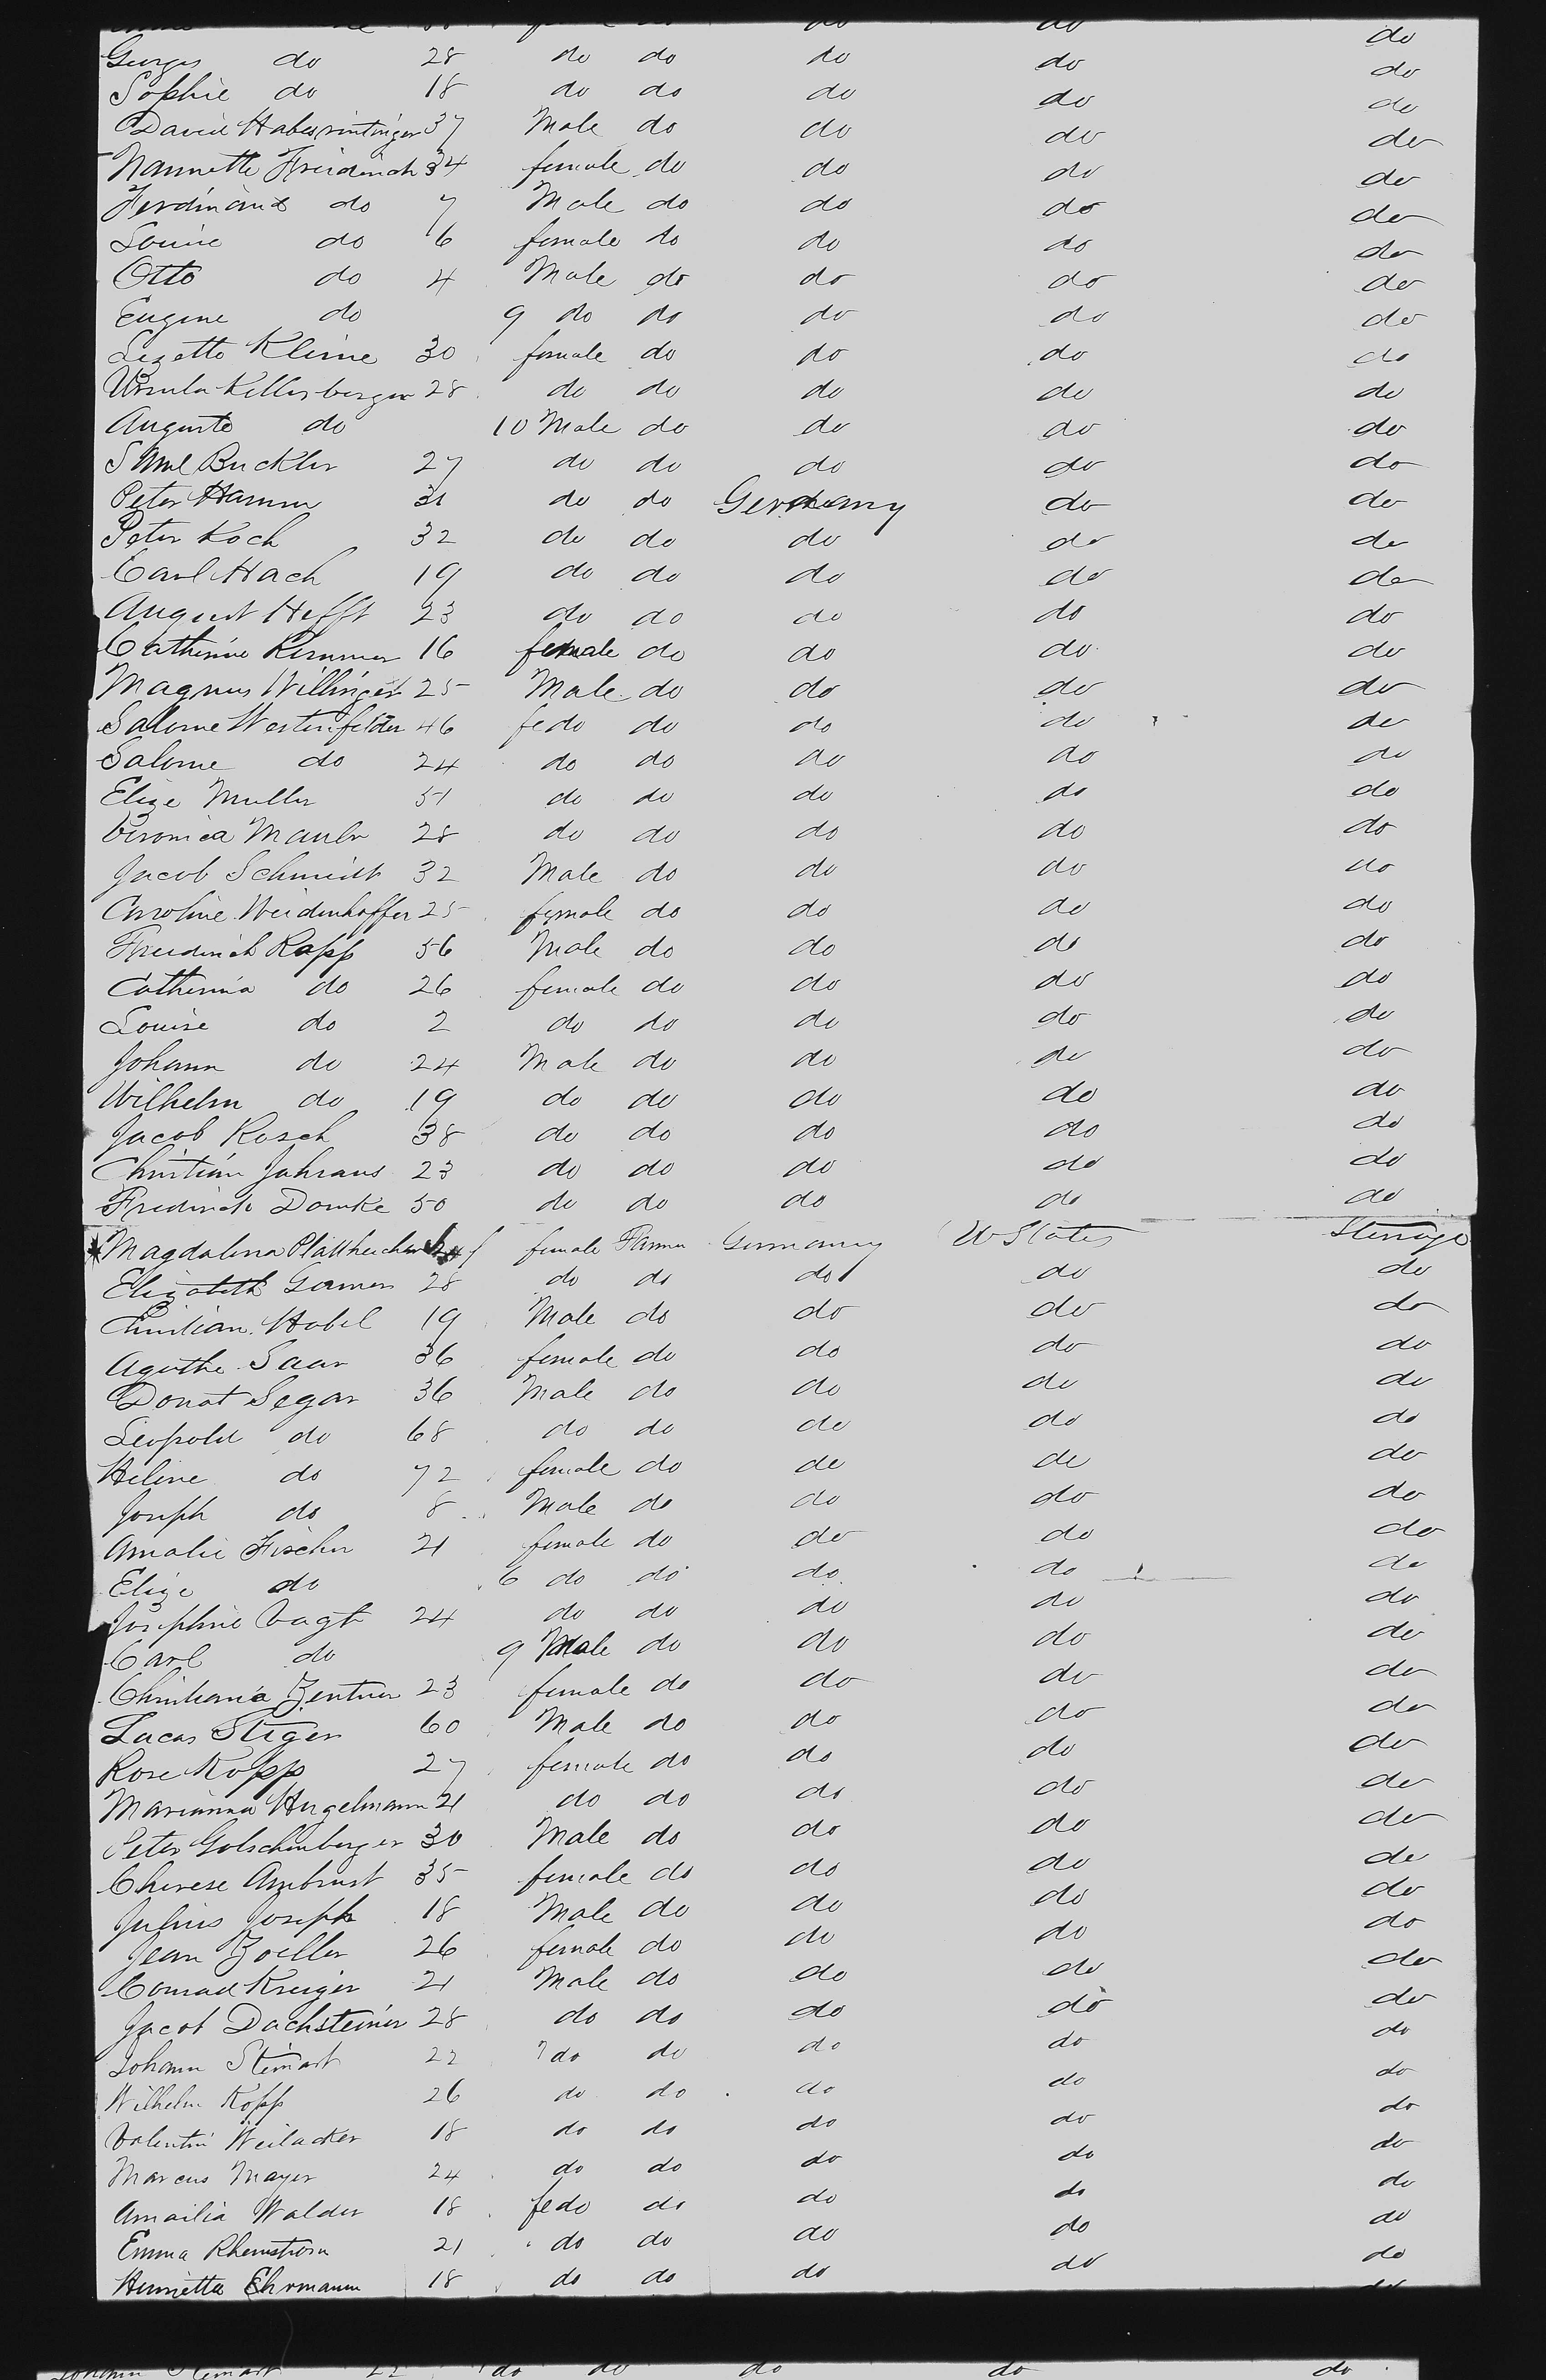 do do do
Georges do 28 do do do do do
Sophie do 18 do do do do do
David 37 Male do do do do
Nannette Freidrich 34 female do do do do
Ferdinand do 7 Male do do do do
Louise do 6 female do do do do
Otto do 4 Male do do do do
Eugene do 9 do do do do do
Lizette Kleine 30 female do do do do
Ursula Kellersberger 28 do do do do do
Auguste do 10 Male do do do do
Buckler 27 do do do do do
Peter Hamm 31 do do Germany do do
Peter Koch 32 do do do do do
Carl Hach 19 do do do do do
August Hefft 23 do do do do do
Catherine Kemmer 16 female do do do do
Magnus Willinger 25 Male do do do do
Salome Westenfelder 46 fe do do do do do
Salome do 24 do do do do do
Elize Muller 51 do do do do do
Veronica Maurer 28 do do do do do
Jacob Schmidt 32 Male do do do do
Caroline Weidenhoffer 25 female do do do do
Freidrich Rapp 56 Male do do do do
Catherina do 26 female do do do do
Louise do 2 do do do do do
Johann do 24 Male do do do do
Wilhelm do 19 do do do do do
Jacob Rosch 38 do do do do do
Christian Jahraus 23 do do do do do
Fredirich Domke 50 do do do do do
Magdalena female Farmer Germany U States Sterrage
Elizabeth 28 do do do do do
Christian Habel 19 Male do do do do
Agathe Saar 36 female do do do do
Donat Segar 36 Male do do do do
Leopold do 68 do do do do do
Helene do 72 female do do do do
Joseph do 8 Male do do do do
Amalie Fischer 21 female do do do do
Elize do 6 do do do do do
Josephine Vagt 24 do do do do do
Carl do 9 Male do do do do
Christiania Zentner 23 female do do do do
Lucas Stiger 60 Male do do do do
Rose Kopp 27 female do do do do
Marianna Hugelmann 21 do do do do do
Peter Golschenberger 30 Male do do do do
Cherese Ambrust 35 female do do do do
Julius Joseph 18 Male do do do do
Jean Zoeller 26 female do do do do
Conrad Kreiger 21 Male do do do do
Jacob Dachsteiner 28 do do do do do
Johann Steinart 22 do do do do do
Wilhelm Kopp 26 do do do do do
Valentin Weilacker 18 do do do do do
Marcus Mayer 24 do do do do do
Amailia Walder 18 fe do do do do do
Emma Rhemstrom 21 do do do do do
Henrietta Ehrmann 18 do do do do do
Johann Steinart 22 do do do do do